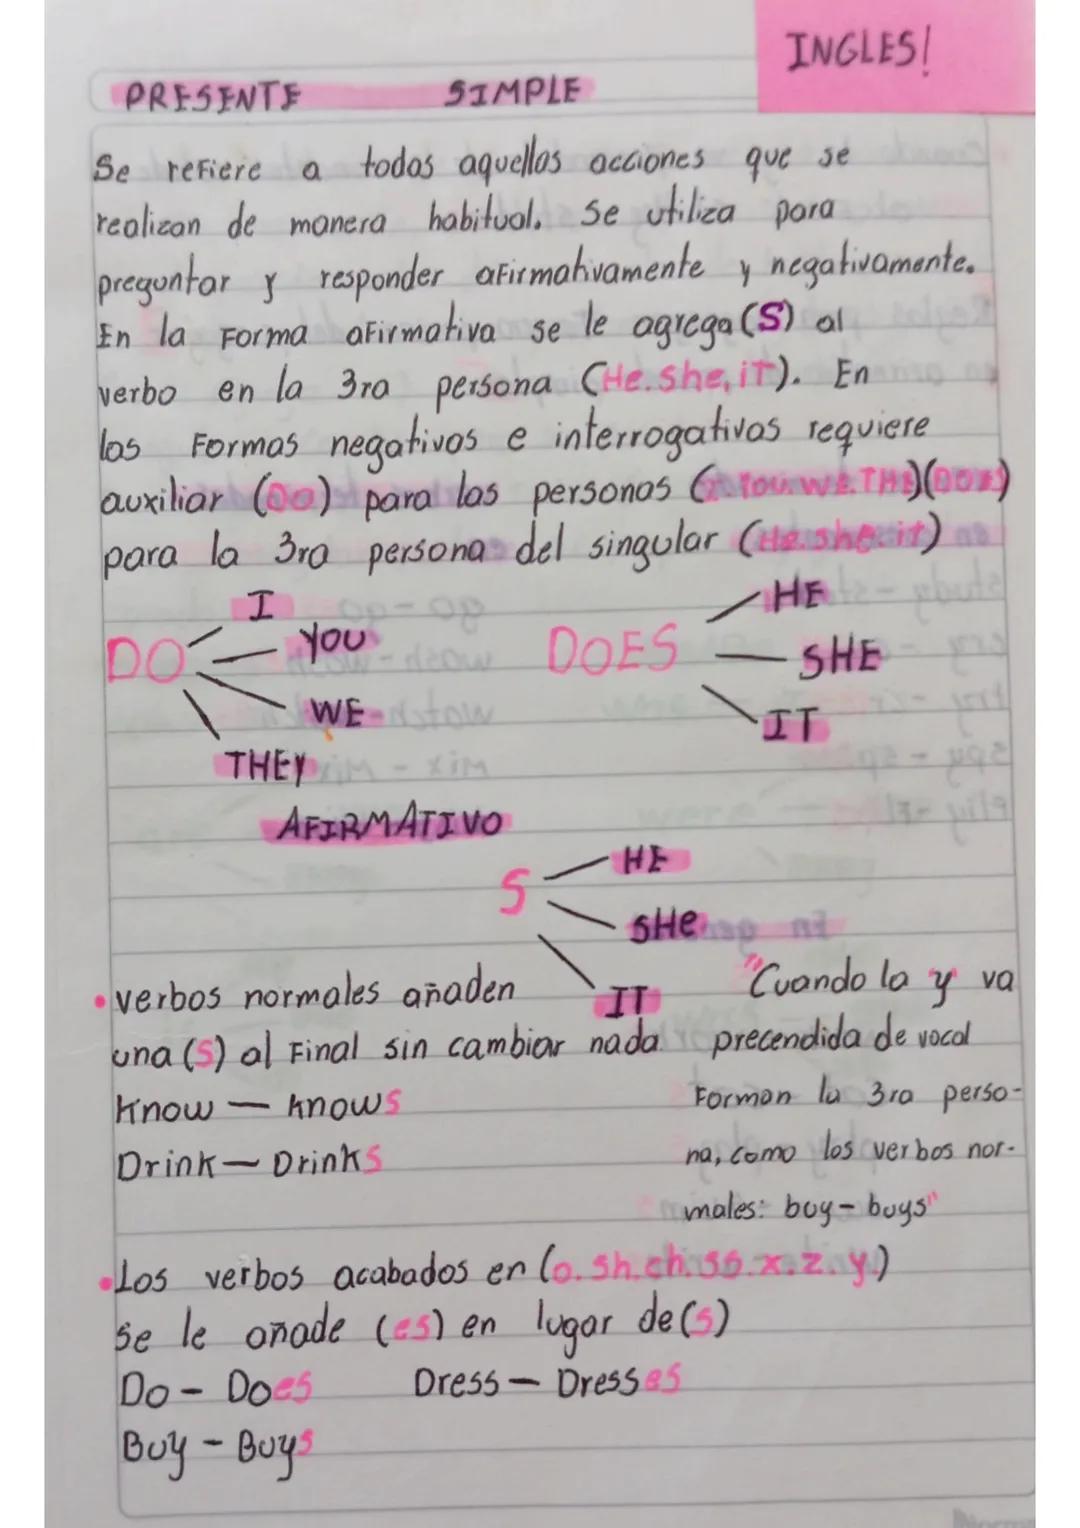 INGLES!
PRESENTE SIMPLE
Se refiere a todas aquellas acciones que se
realizan de manera habitual. Se utiliza para
preguntar y responder afirmativamente y negativamente.
En la Forma afirmativa se le agrega (S) al
verbo en la 3ra persona (He.she,iT). En
las Formas negativas e interrogativas requiere
auxiliar (Do) para las personas (I.You.WE.THE)(DOES)
para la 3ra persona del singular (He.she.it)
DO
I
YOU
WE
THEY
DOES
HE
SHE
IT
AFIRMATIVO
S
HE
SHe
IT
•verbos normales añaden
una (S) al Final sin cambiar nada
Know — knows
Drink — Drinks
"Cuando la y va
precendida de vocal
Forman la 3ra perso-
na, como los verbos nor-
males: buy - buys"
•Los verbos acabados en (o.sh.ch.ss.x.z.y)
se le añade (es) en lugar de (s)
Do - Does Dress — Dresses
Buy - Buys